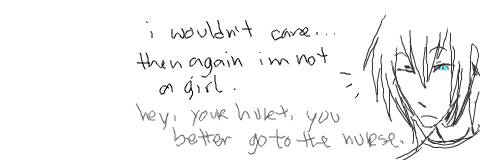 i wouldn't care...
then again im not
a girl.
hey, your hurt, you
better go to the nurse.